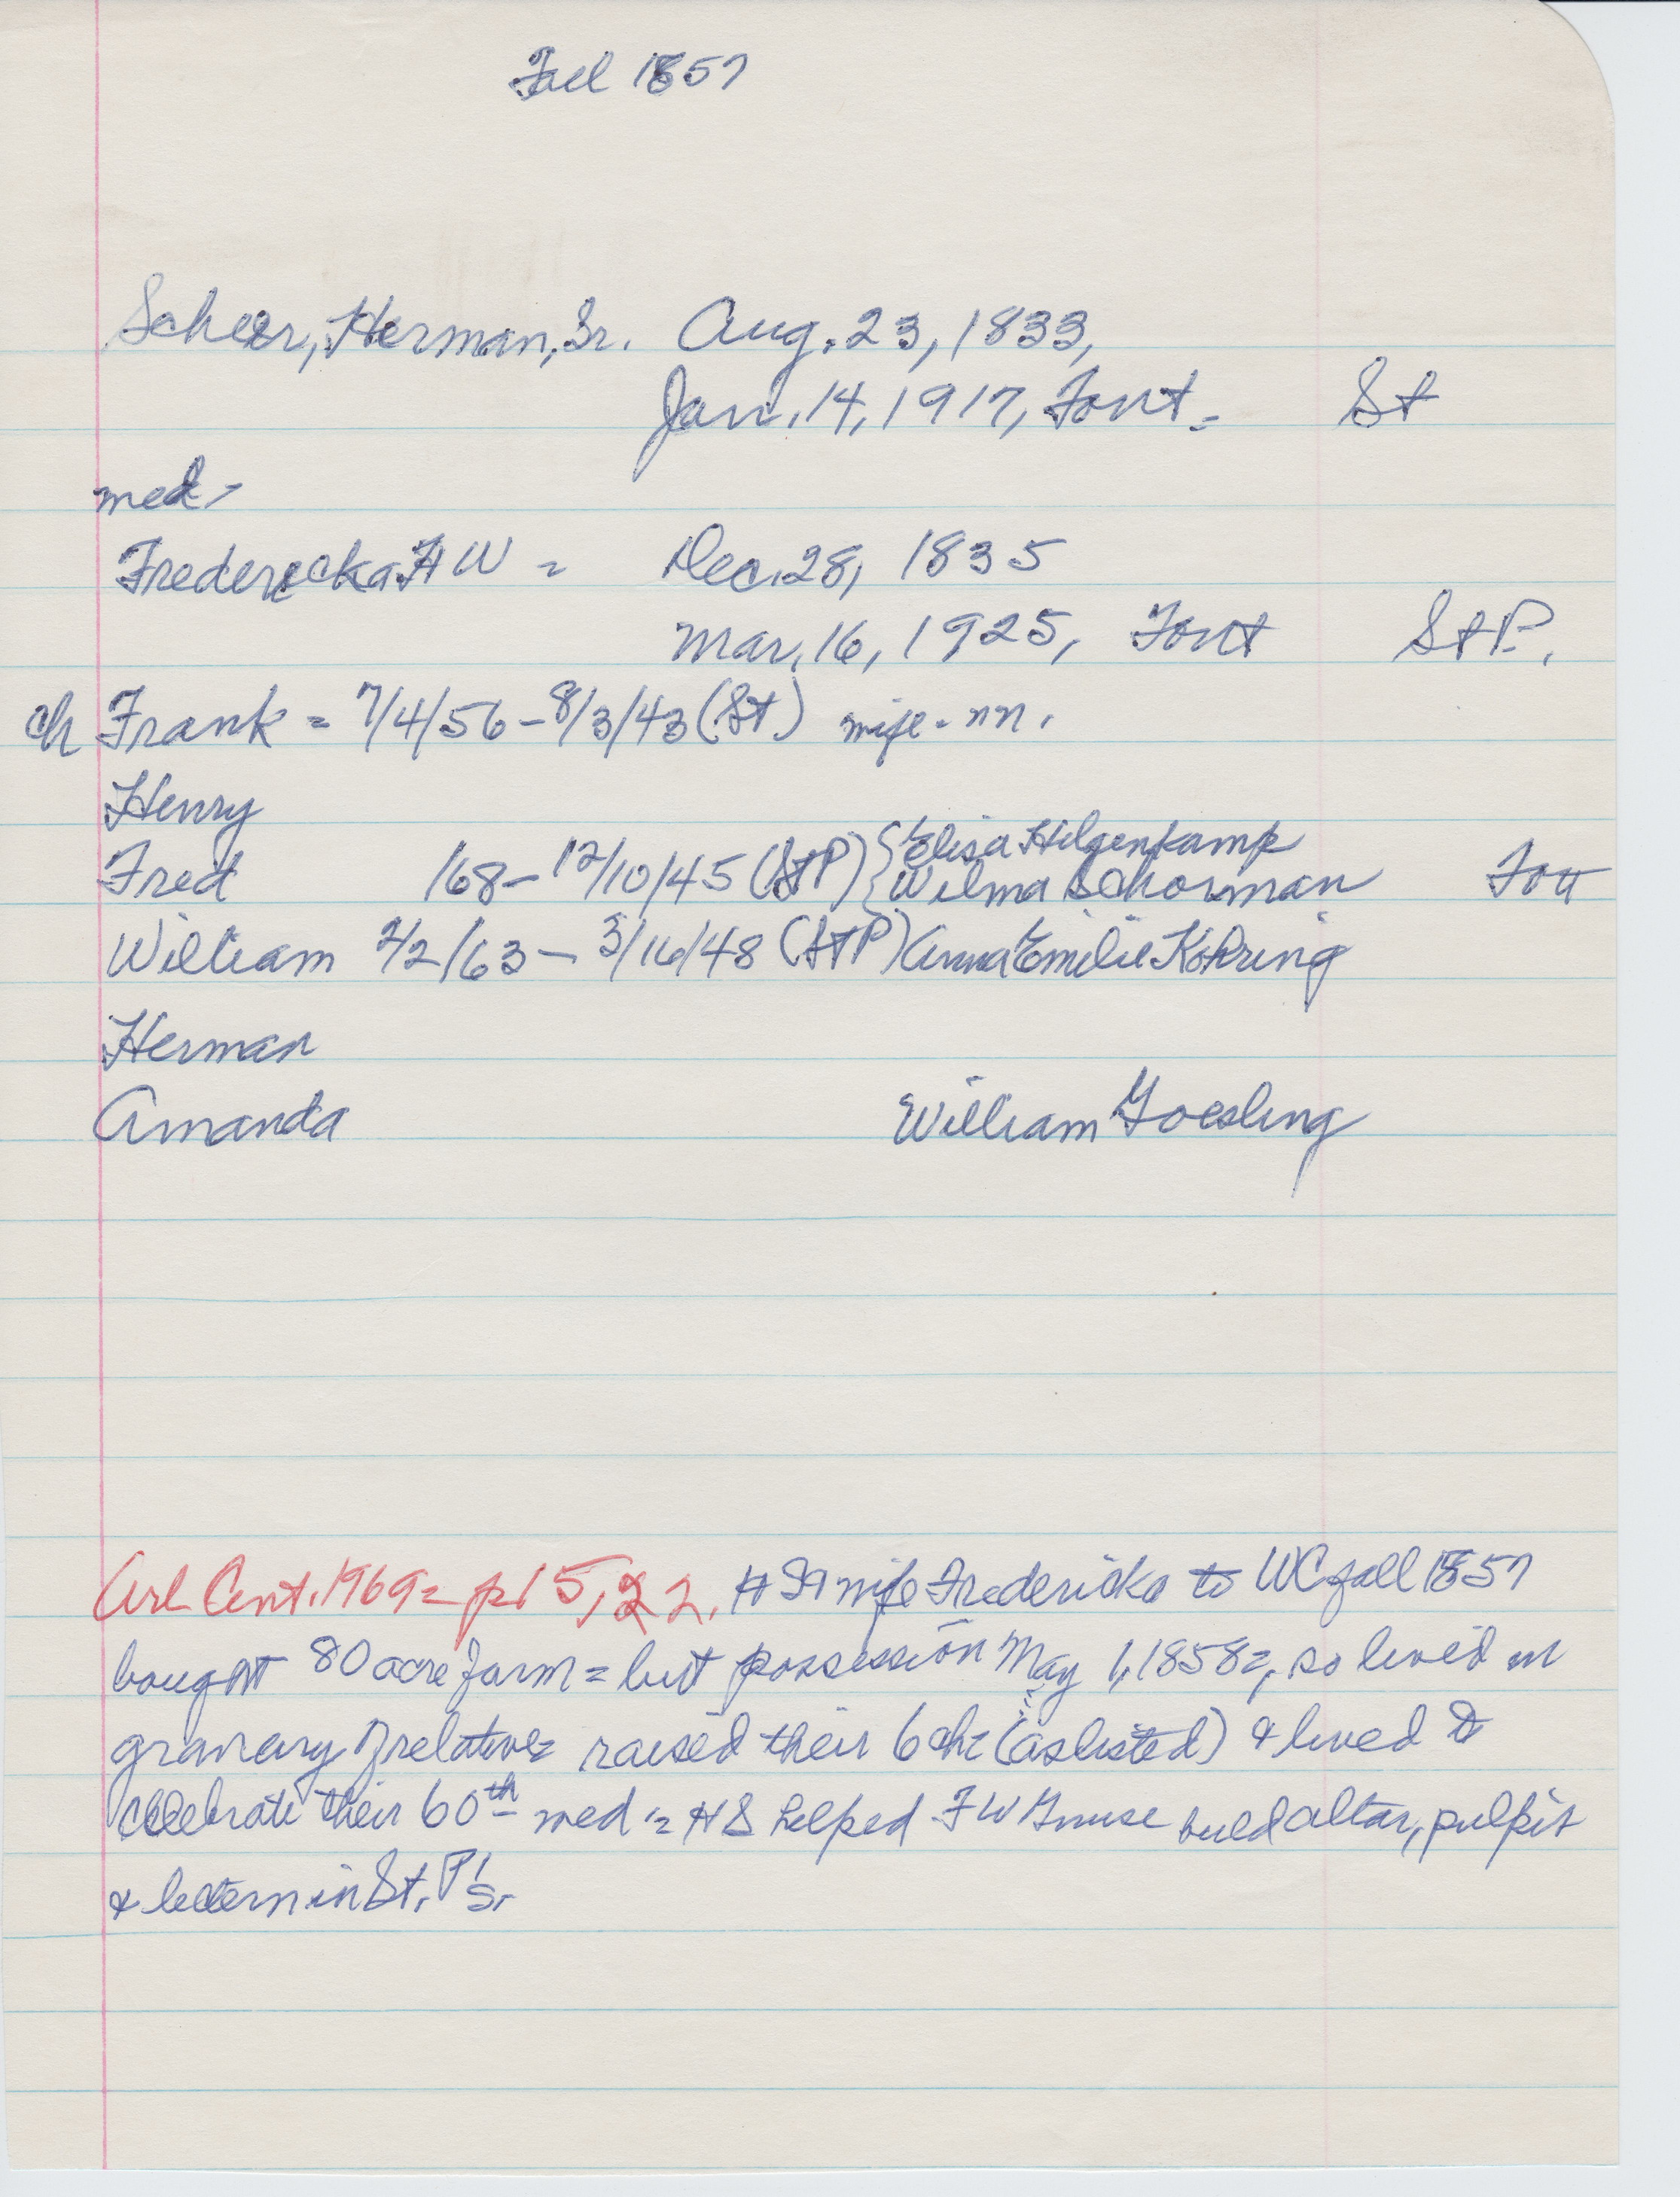 Fall 1857
Scheer, Herman, Sr. Aug. 23, 1833,
Jan. 14, 1917, Font = St
wed -
Fredericka H W = Dec. 28, 1835
Mar. 16, 1925, Font St P.
ch Frank = 7/4/56 - 8/3/43 (St) wife - nn.
Henry
Fred /68 - 12/10/45 (St P) { Elisa Hilgenkamp
Wilma Schorman Font
William 2/2/63 - 3/16/48 (St P) Anna Emilie Kohring
Herman
Amanda William Goesling
Arl Cent. 1969 = p 15, 22. H S & wife Fredericka to WC fall 1857
bought 80 acre farm = but possession May 1, 1858 =, so lived in
granary of relative = raised their 6 ch = (as listed) & lived to
celebrate their 60th wed = H S helped F W Gruse build altar, pulpit
& lectern in St. P's.